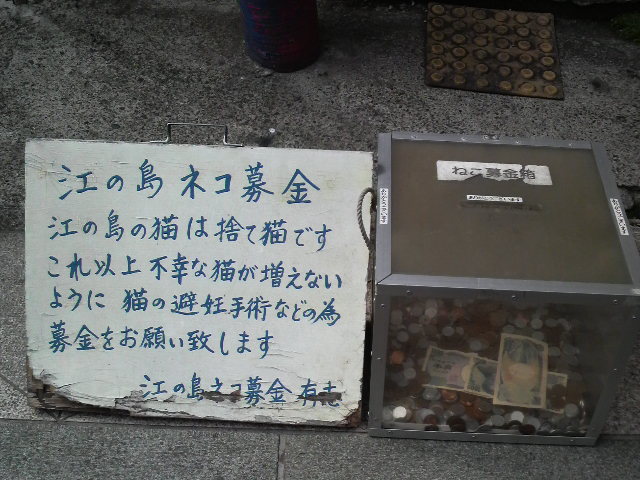 江の島ネコ募金
江の島の猫は捨て猫です
これ以上不幸な猫が増えない
ように 猫の避妊手術などの為
募金をお願い致します
江の島ネコ募金有志
ねこ募金箱